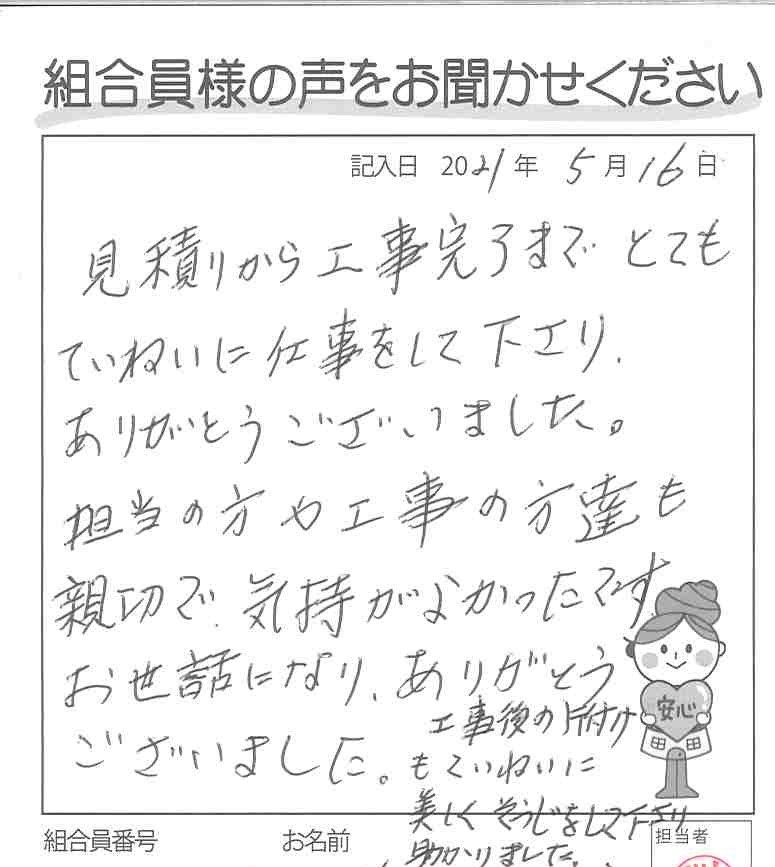 組合員様の声をお聞かせください
記入日 2021年 5月16日
見積りから工事完了まで とても
ていねいに仕事をして下さり、
ありがとうございました。
担当の方や工事の方達も
親切で、気持がよかったです。
お世話になり、ありがとう
ございました。
工事後の片付け
もていねいに
美しくそうじをして下さり
助かりました。
安心
組合員番号 お名前 担当者